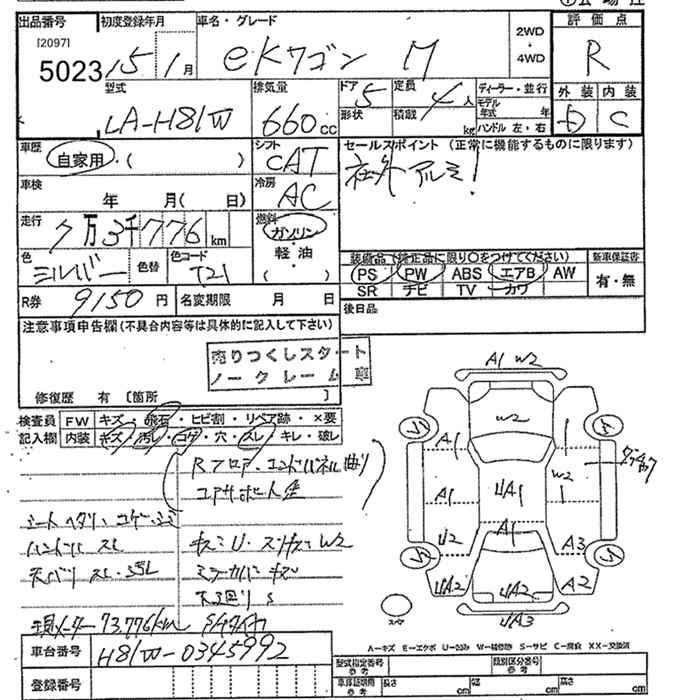 出品番号 初度登録年月 車名・グレード 2WD ・ 4WD 評価点
[2097]
5023 15 1月 eKワゴン M R
型式 排気量 ドア 5 定員 4人 ディーラー・並行 外装 内装
LA-H81W 660cc 形状 積載 kg モデル年式 年 D C
ハンドル 左・右
車歴 自家用・( ) シフト CAT セールスポイント (正常に機能するものに限ります)
車検 年 月(日) 冷房 AC 社外アルミ!
走行 7万3千776km 燃料 ガソリン
軽油
( )
色 シルバー 色替 色コード T21
装備品(純正品に限り○をつけてください) 新車保証書
PS PW ABS エアB AW 有・無
SR ナビ TV カワ
R券 9150円 名変期限 月 日 後日品
注意事項申告欄(不具合内容等は具体的に記入して下さい)
売りつくしスタート
ノークレーム車
修復歴 有 [箇所 ]
検査員 FW キズ・飛石・ヒビ割・リペア跡・×要
記入欄 内装 キズ・汚レ・コゲ・穴・スレ・キレ・破レ
Rフロア・エンドパネル曲り
コアサポート
シートヘタリ・コゲ
ハンドル スレ キズU・スリキズ W2
天バリ スレ・汚レ
キズ
下廻り S
現メーター73,776km
A1 W2
W2
A1
W2
A1 UA1
A1
U2 A3
UA2 UA2 A2
UA3
スペア
A-キズ E-エクボ U-凹み W-補修跡 S-サビ C-腐食 XX-交換済
車台番号 H81W-0345992
登録番号
型式指定番号 参考 類別区分番号 参考
車庫証明用 参考 長さ cm 幅 cm 高さ cm